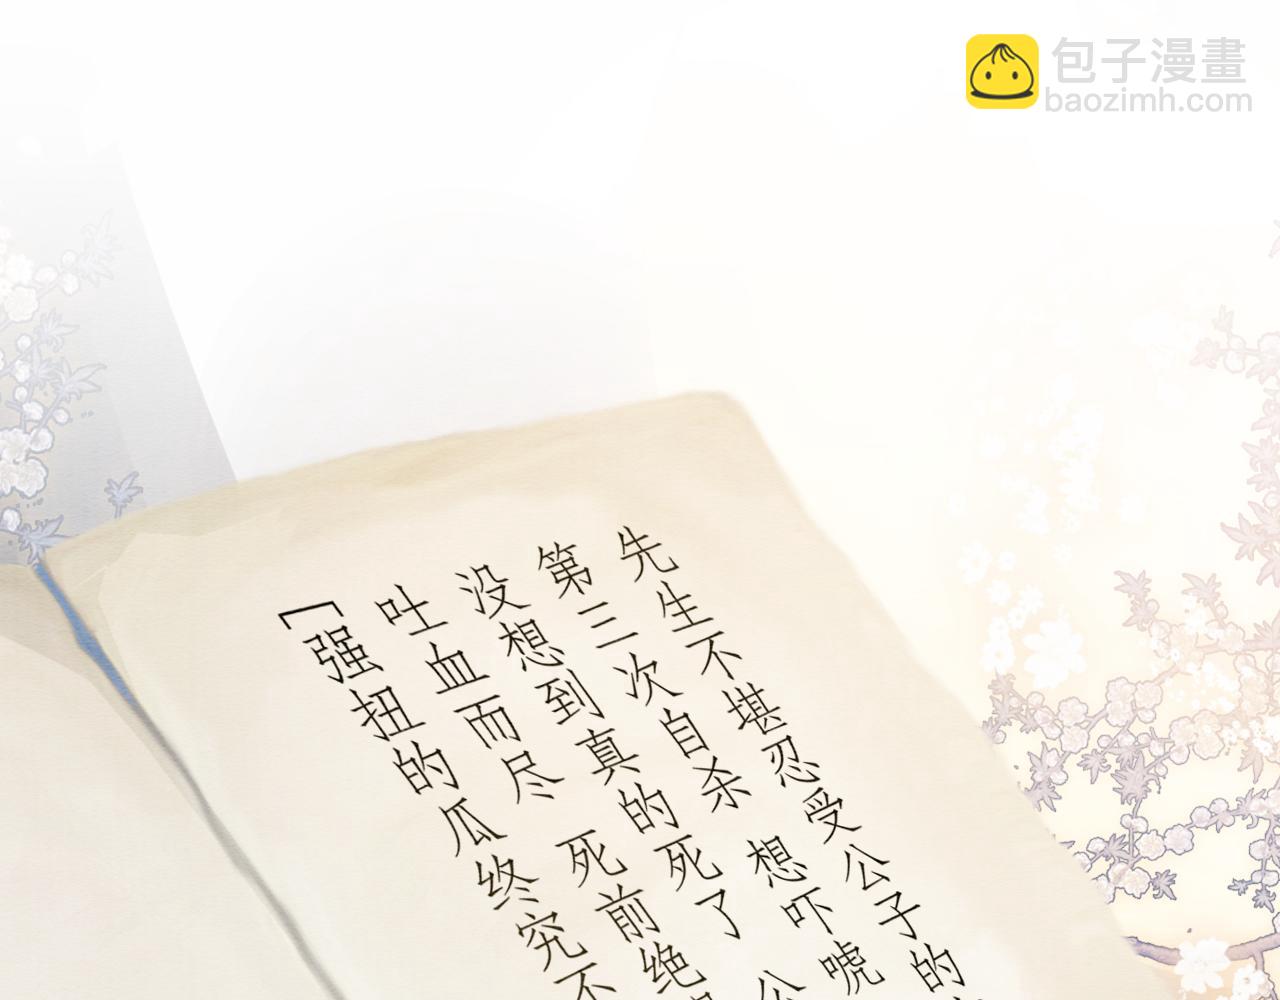 包子漫畫
baozimh.com
先生不堪忍受公子的
第三次自杀 想吓唬
没想到真的死了 公
吐血而尽 死前绝
「强扭的瓜终究不